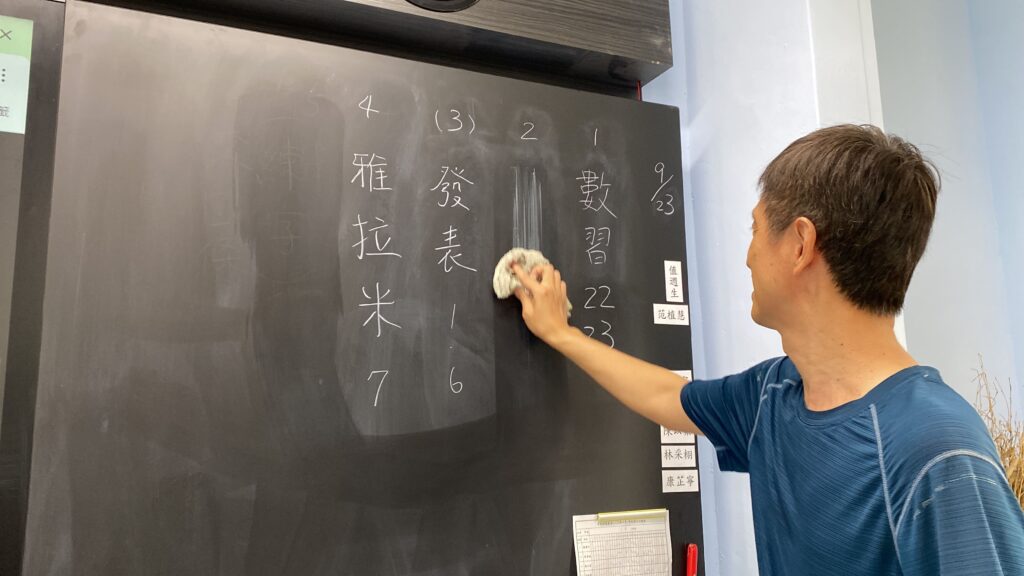 9/23
1
數習
22
23
2
(3)
發表
1.6
4
雅拉米
7
值週生
范植慈
林采栩
康芷寧